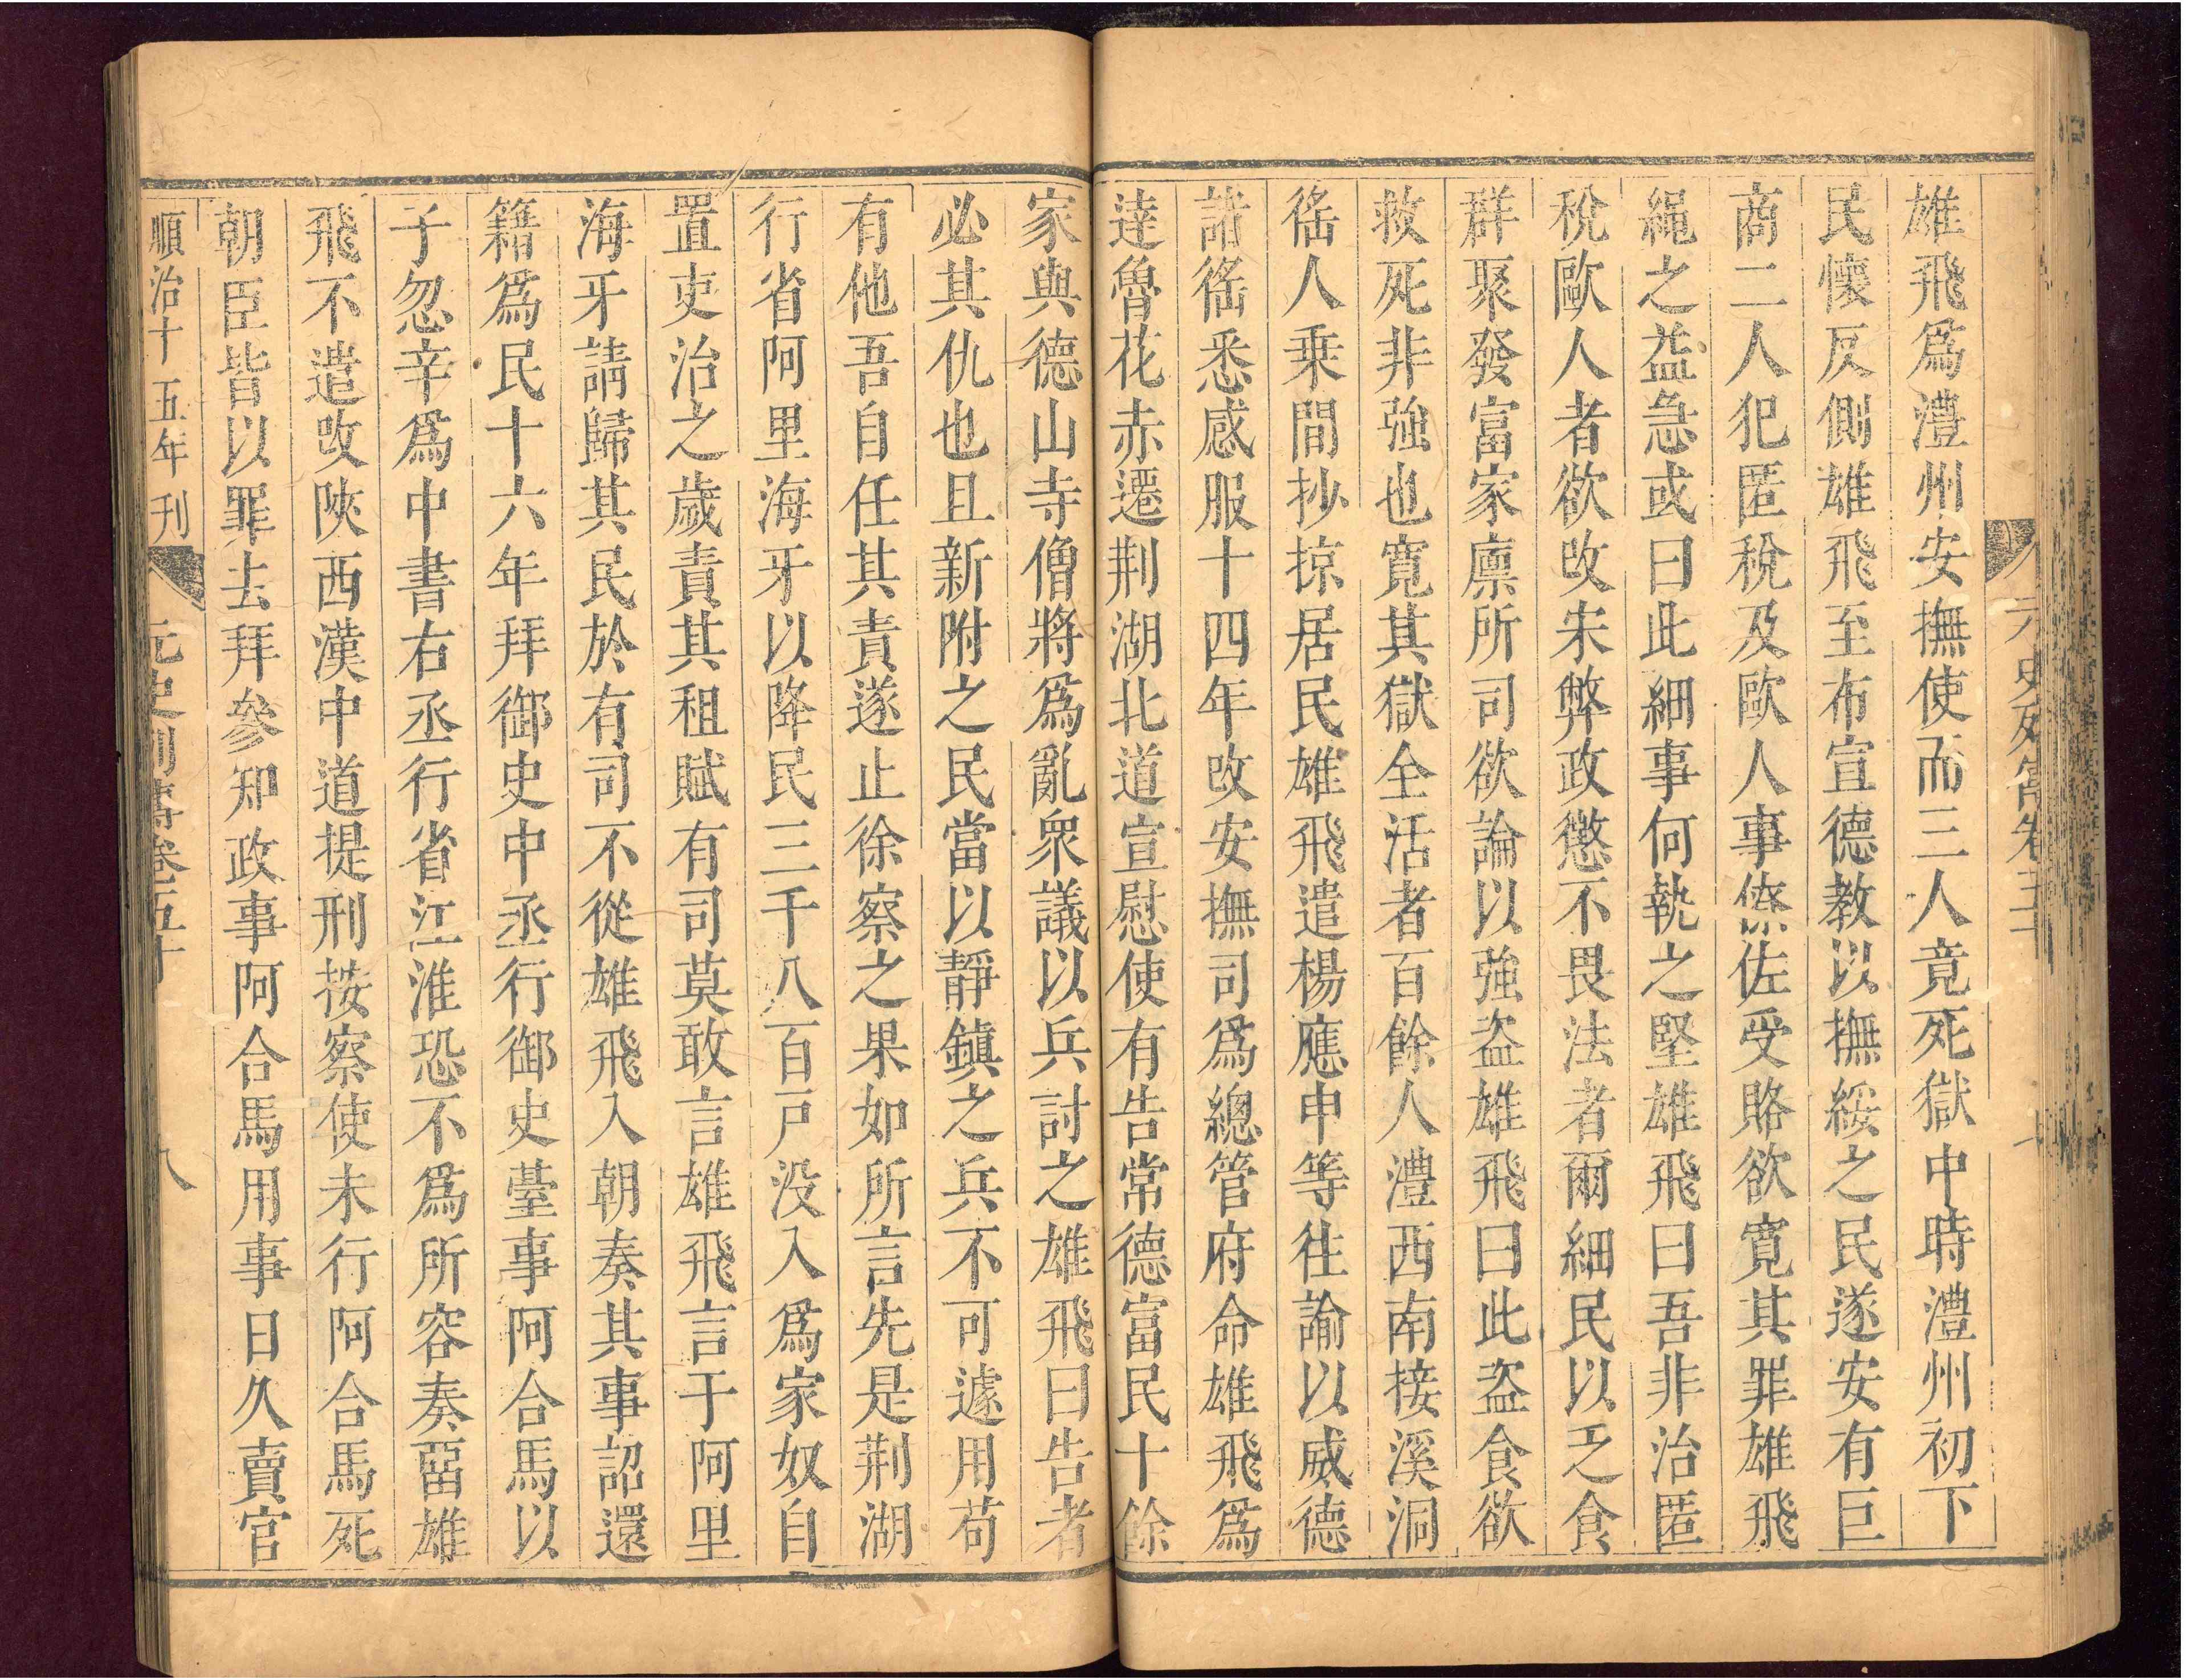 雄飛爲澧州安撫使而三人竟死獄中時澧州初下
民懷反側雄飛至布宣德教以撫綏之民遂安有巨
商二人犯匿稅及歐人事僚佐受賂欲寬其罪雄飛
繩之益急或曰此細事何執之堅雄飛曰吾非治匿
稅歐人者欲改宋弊政懲不畏法者爾細民以乏食
群聚發富家廪所司欲論以強盗雄飛曰此盗食欲
救死非強也寛其獄全活者百餘人澧西南接溪洞
徭人乗間抄掠居民雄飛遣楊應申等徃諭以威德
諸徭悉感服十四年改安撫司爲總管府命雄飛爲
達魯花赤遷荆湖北道宣慰使有告常德富民十餘
家與德山寺僧將爲亂衆議以兵討之雄飛曰告者
必其仇也且新附之民當以靜鎮之兵不可遽用苟
有他吾自任其責遂止徐察之果如所言先是荆湖
行省阿里海牙以降民三千八百戸没入爲家奴自
置吏治之歲責其租賦有司莫敢言雄飛言于阿里
海牙請歸其民於有司不從雄飛入朝奏其事詔還
籍爲民十六年拜御史中丞行御史臺事阿合馬以
子忽辛爲中書右丞行省江淮恐不爲所容奏留雄
飛不遣改陝西漢中道提刑按察使未行阿合馬死
朝臣皆以罪去拜參知政事阿合馬用事日久賣官
順治十五年刊 元史列傳卷五十 八